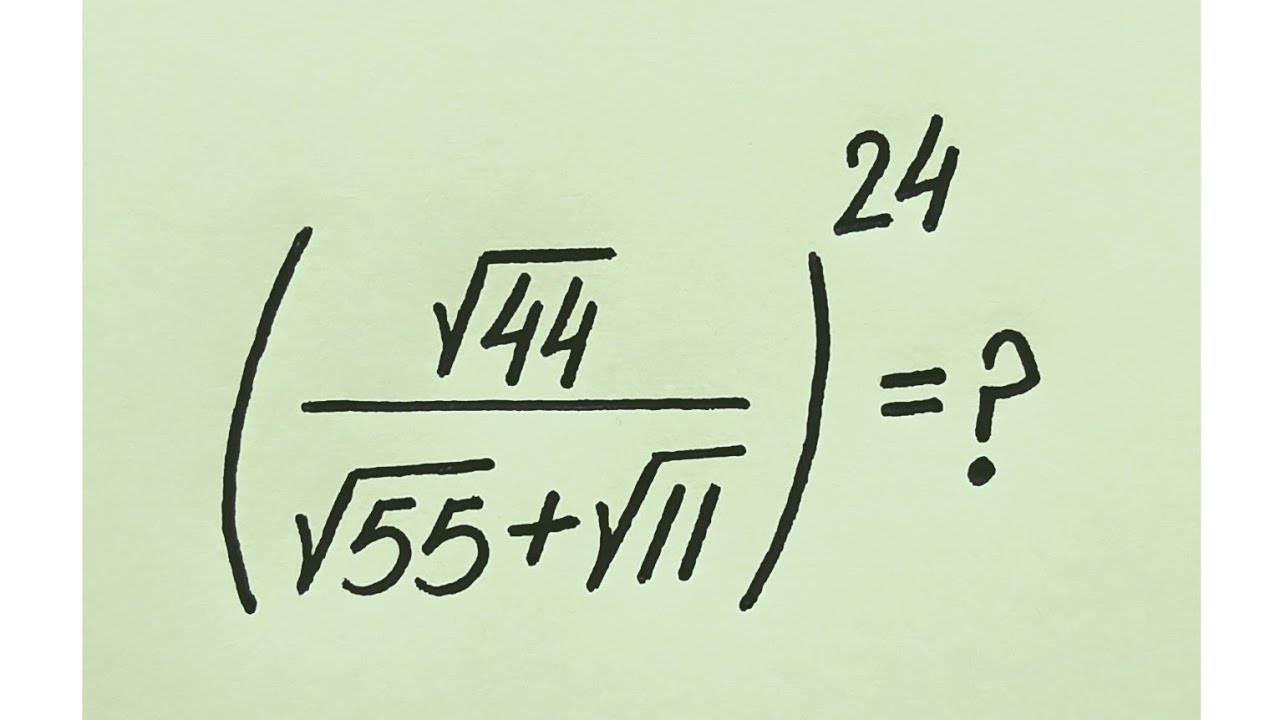 (√44 / (√55 + √11))²⁴ = ?